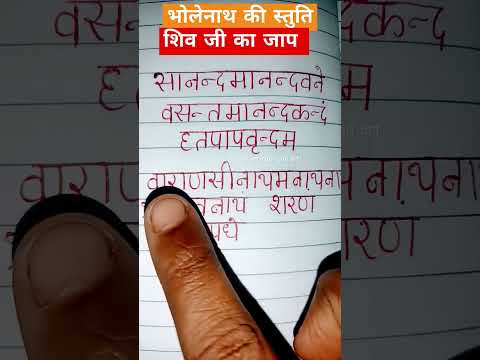 भोलेनाथ की स्तुति
शिव जी का जाप
सानन्दमानन्दवने
वसन्तमानन्दकन्दं
हतपापवृन्दम
वाराणसीनाथमनाथना
नाथं शरण